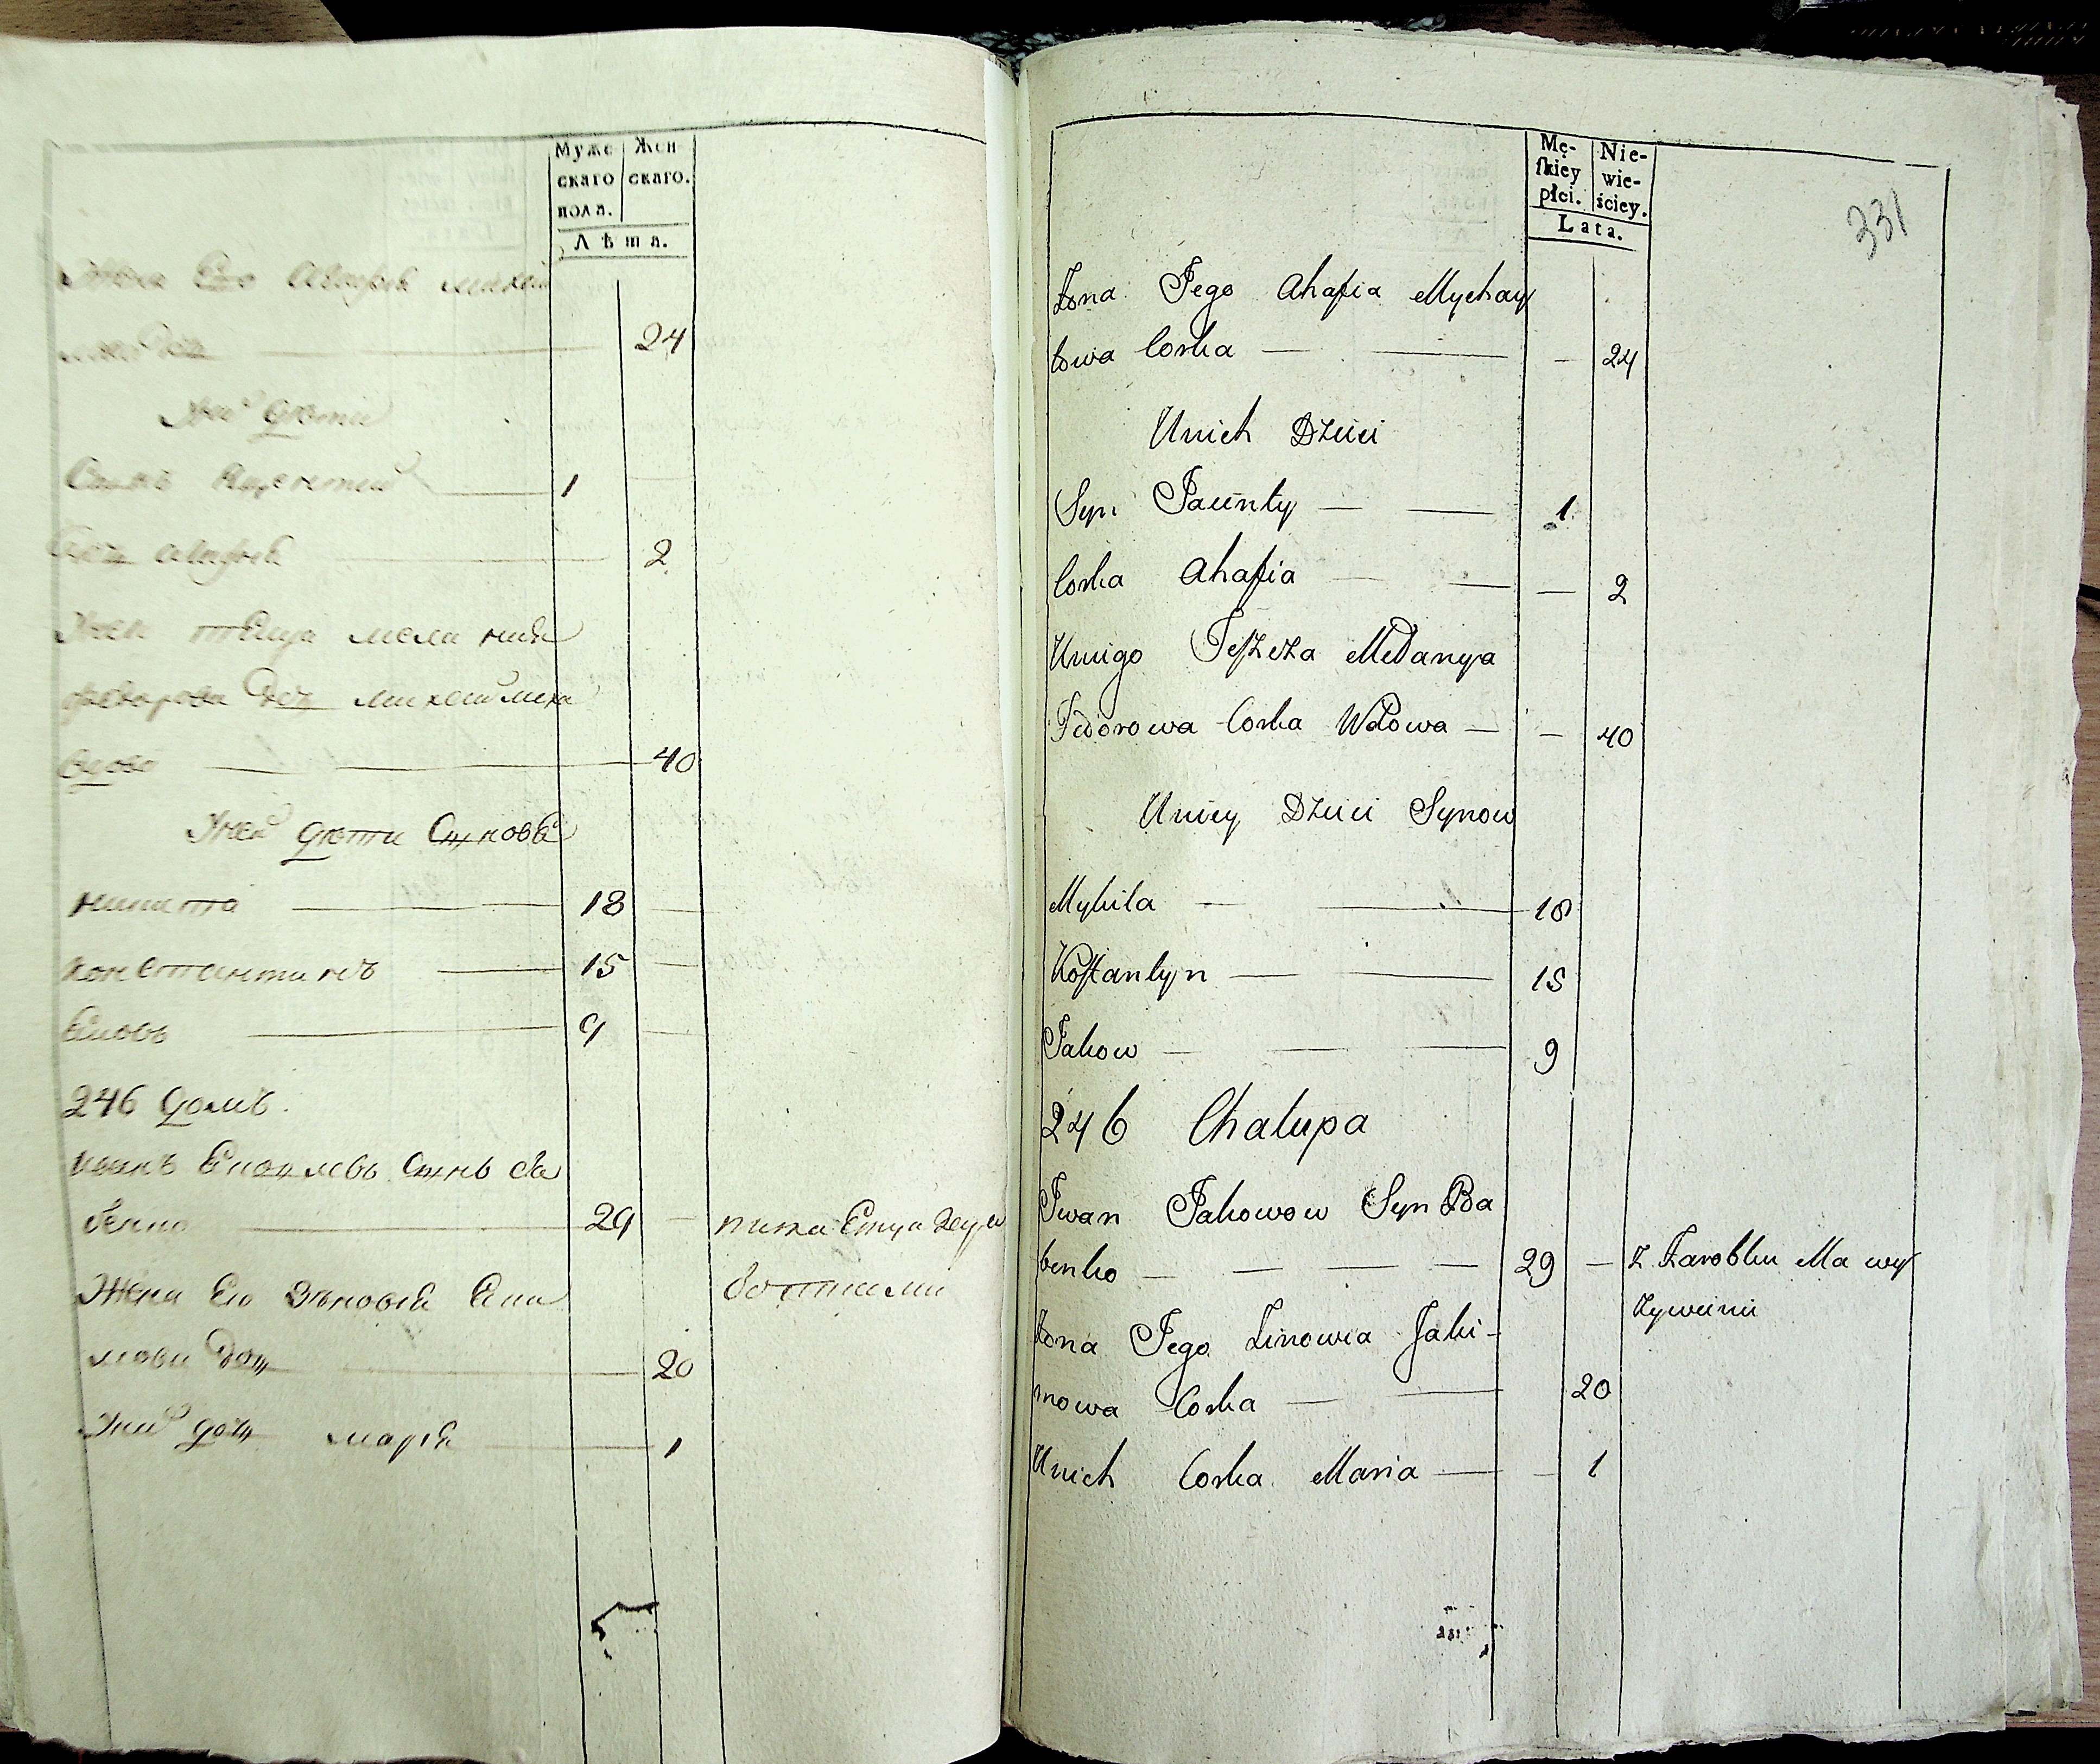 Муже
скаго
пола.
Жен
скаго.
Лѣта.
Жена Его Агафiя михай
24
дѣти
Сынъ 1
дочь Агафiя 2
теща мелания
федорова дочь
вдова 40
дѣти Сыновя
никита 18
константинъ 15
Яковъ 9
246 домъ.
иванъ Яковлевъ Сынъ Ба
бенко 29
Жена Его Зѣновiя Яки
мова дочь 20
дочь марiя 1
Mę-
ſkiey
płci.
Nie-
wie-
ściey.
Lata.
331
Żona Jego Ahafia Mychay
łowa Corka — — — 24
Unich Dzieci
Syn Jaunty — — 1
Corka Ahafia — — — 2
Uniego Teſzcza Melanya
Fedorowa Corka Wdowa — — 40
Uniey Dzieci Synow
Mykita — — 18
Koſtantyn — — 15
Jakow — — — 9
246 Chalupa
Iwan Jakowow Syn Ba
benko — — — — 29 — Z Zarobku Ma wy
żywieni
Żona Jego Zinowia Jaki-
mowa Corka — — 20
Unich Corka Maria — — 1